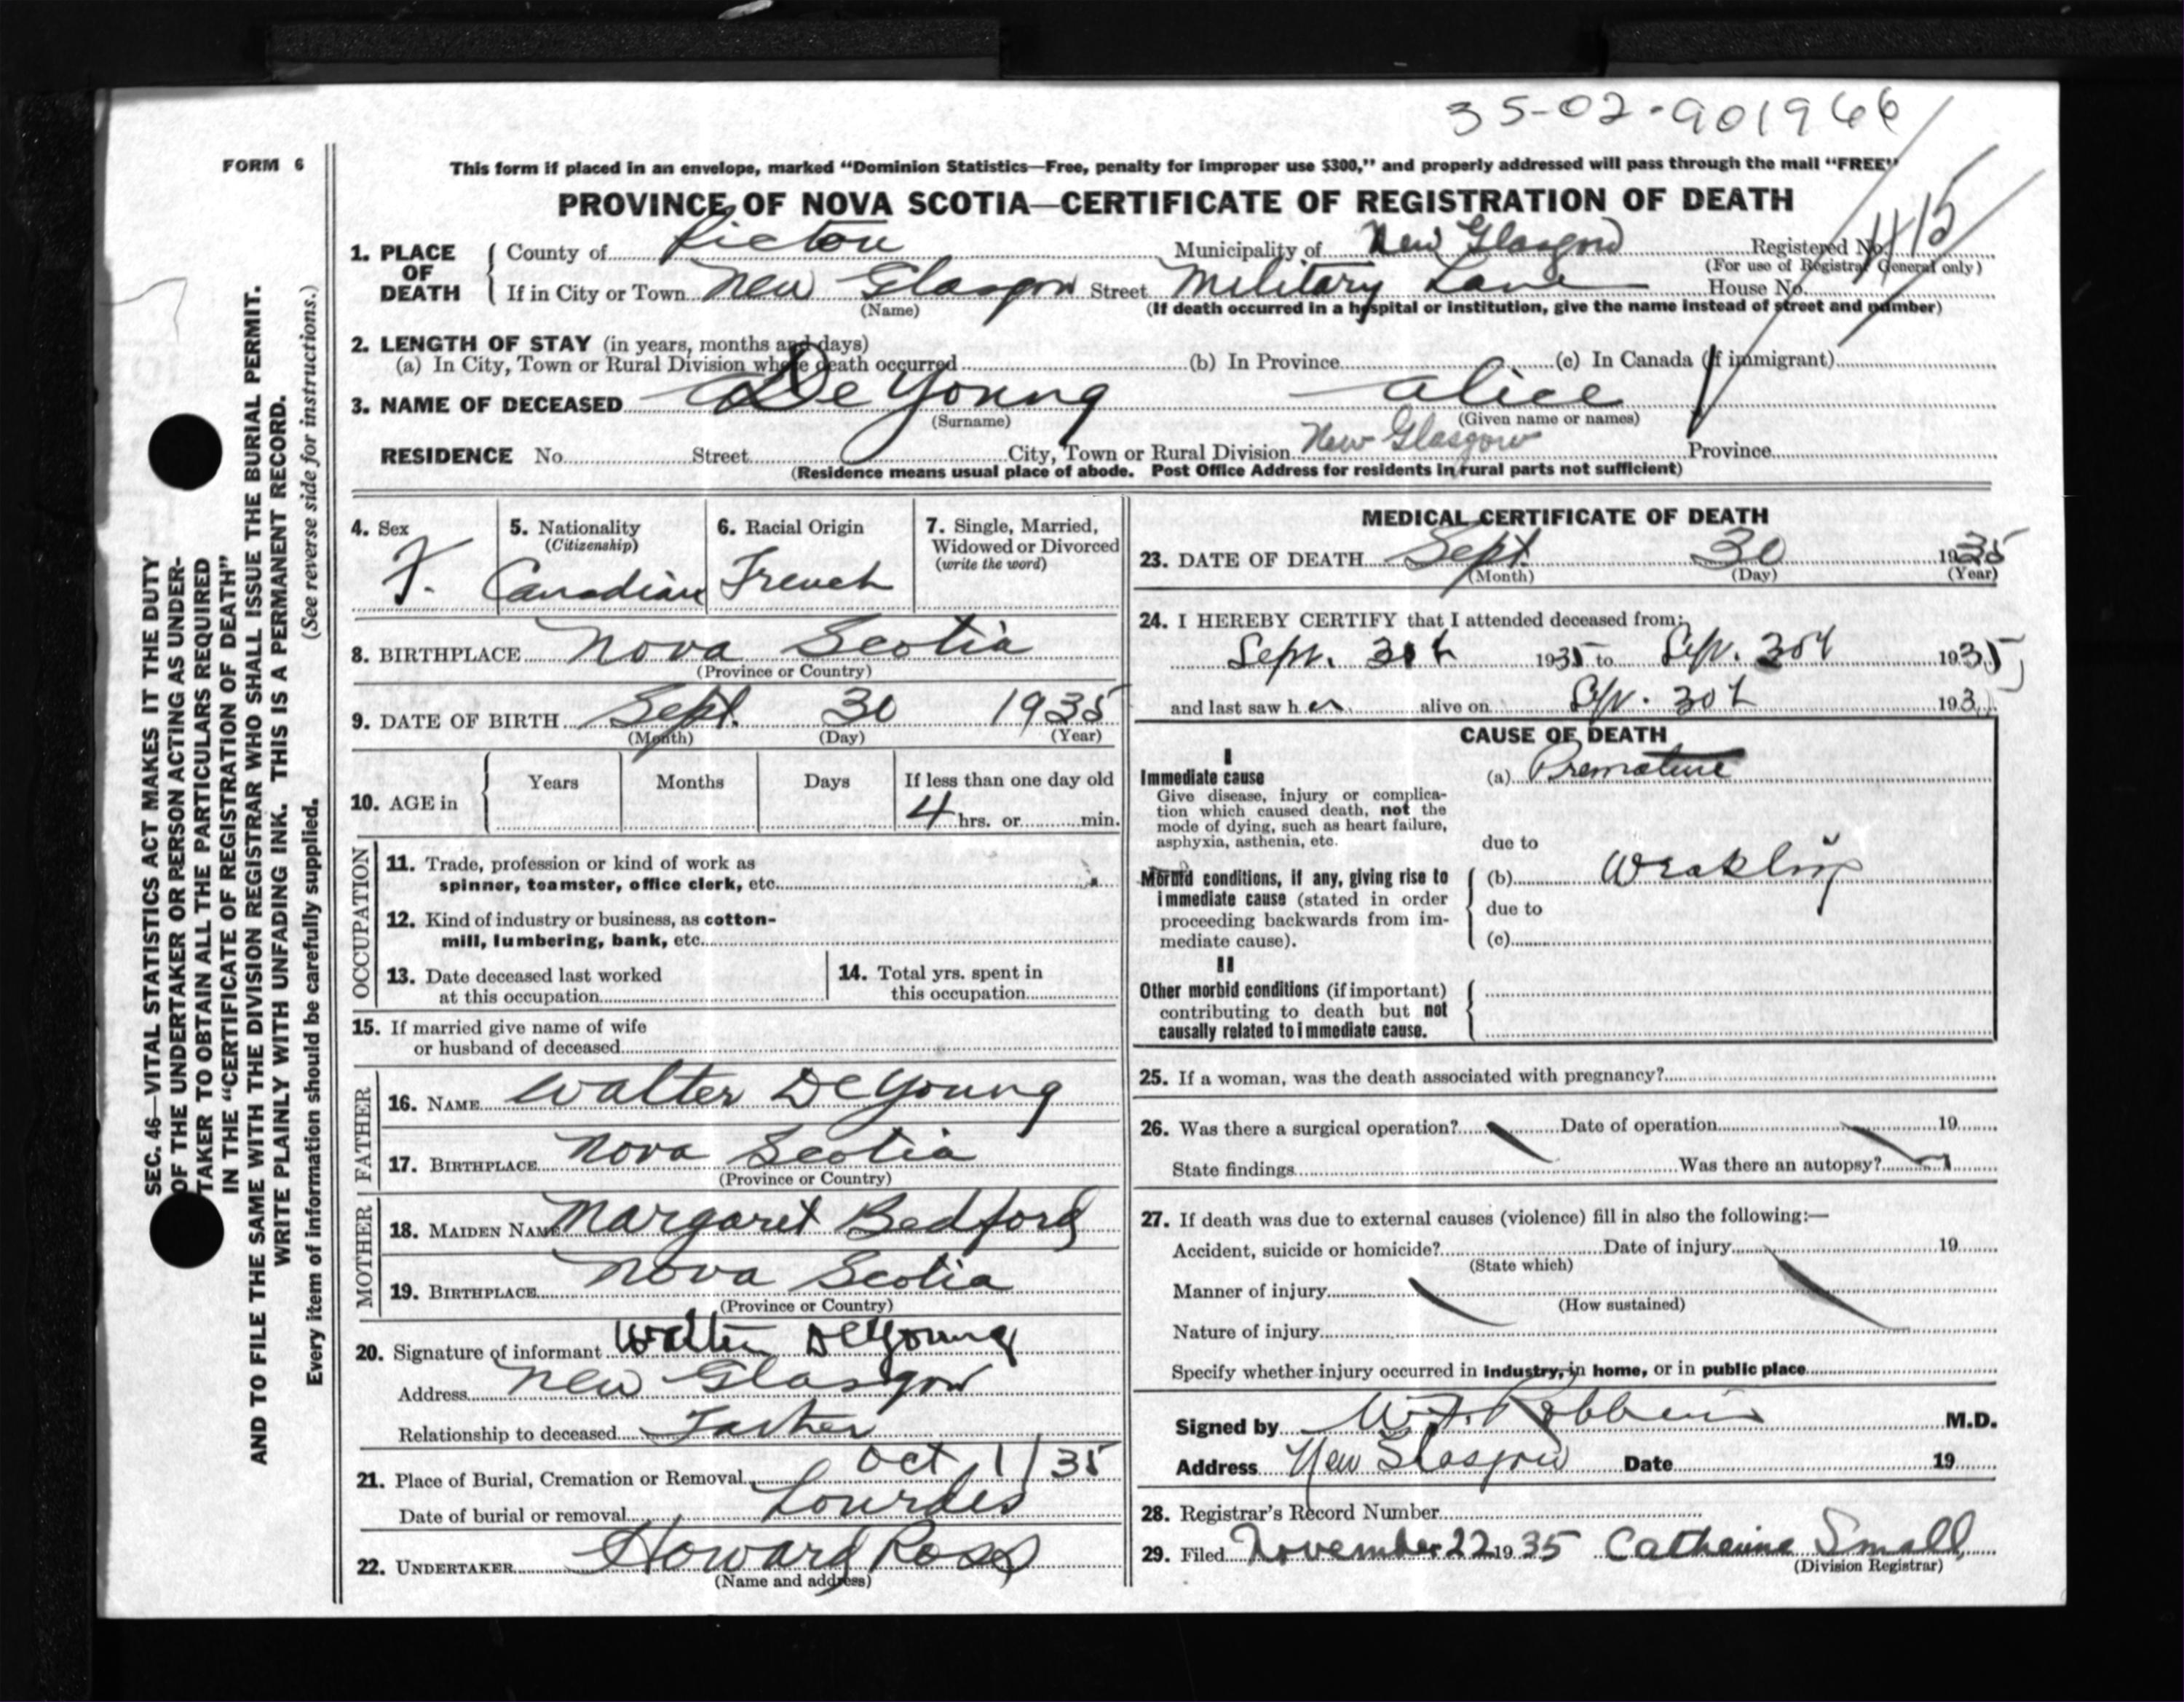 35-02-901966
FORM 6
This form if placed in an envelope, marked "Dominion Statistics—Free, penalty for improper use $300," and properly addressed will pass through the mail "FREE"
PROVINCE OF NOVA SCOTIA—CERTIFICATE OF REGISTRATION OF DEATH
1. PLACE OF DEATH County of Pictou Municipality of New Glasgow Registered No.
(For use of Registrar General only)
If in City or Town New Glasgow Street Military Lane House No.
(Name) (If death occurred in a hospital or institution, give the name instead of street and number)
2. LENGTH OF STAY (in years, months and days)
(a) In City, Town or Rural Division where death occurred (b) In Province (c) In Canada (if immigrant)
3. NAME OF DECEASED De Young Alice
(Surname) (Given name or names)
RESIDENCE No. Street City, Town or Rural Division New Glasgow Province
(Residence means usual place of abode. Post Office Address for residents in rural parts not sufficient)
4. Sex F.
5. Nationality (Citizenship) Canadian
6. Racial Origin French
7. Single, Married, Widowed or Divorced (write the word)
8. BIRTHPLACE Nova Scotia
(Province or Country)
9. DATE OF BIRTH Sept. 30 1935
(Month) (Day) (Year)
10. AGE in Years Months Days If less than one day old
4 hrs. or min.
OCCUPATION
11. Trade, profession or kind of work as
spinner, teamster, office clerk, etc.
12. Kind of industry or business, as cotton-
mill, lumbering, bank, etc.
13. Date deceased last worked
at this occupation
14. Total yrs. spent in
this occupation
15. If married give name of wife
or husband of deceased
FATHER
16. NAME Walter DeYoung
17. BIRTHPLACE Nova Scotia
(Province or Country)
MOTHER
18. MAIDEN NAME Margaret Bedford
19. BIRTHPLACE Nova Scotia
(Province or Country)
20. Signature of informant Walter DeYoung
Address New Glasgow
Relationship to deceased Father
21. Place of Burial, Cremation or Removal Oct 1/35
Date of burial or removal Lourdes
22. UNDERTAKER Howard Ross
(Name and address)
MEDICAL CERTIFICATE OF DEATH
23. DATE OF DEATH Sept. 30 1935
(Month) (Day) (Year)
24. I HEREBY CERTIFY that I attended deceased from:
Sept. 30th 1935 to Sep. 30th 1935
and last saw her alive on Sep. 30th 193
CAUSE OF DEATH
I
Immediate cause (a) Premature
Give disease, injury or complica-
tion which caused death, not the
mode of dying, such as heart failure,
asphyxia, asthenia, etc.
due to
Morbid conditions, if any, giving rise to
immediate cause (stated in order
proceeding backwards from im-
mediate cause).
(b) Weakling
due to
(c)
II
Other morbid conditions (if important)
contributing to death but not
causally related to immediate cause.
25. If a woman, was the death associated with pregnancy?
26. Was there a surgical operation? Date of operation 19
State findings Was there an autopsy?
27. If death was due to external causes (violence) fill in also the following:—
Accident, suicide or homicide? Date of injury 19
(State which)
Manner of injury
(How sustained)
Nature of injury
Specify whether injury occurred in industry, in home, or in public place
Signed by W.F. Robbins M.D.
Address New Glasgow Date 19
28. Registrar's Record Number
29. Filed November 22 1935 Catherine Small
(Division Registrar)
SEC. 46—VITAL STATISTICS ACT MAKES IT THE DUTY
OF THE UNDERTAKER OR PERSON ACTING AS UNDER-
TAKER TO OBTAIN ALL THE PARTICULARS REQUIRED
IN THE "CERTIFICATE OF REGISTRATION OF DEATH"
AND TO FILE THE SAME WITH THE DIVISION REGISTRAR WHO SHALL ISSUE THE BURIAL PERMIT.
WRITE PLAINLY WITH UNFADING INK. THIS IS A PERMANENT RECORD.
(See reverse side for instructions.)
Every item of information should be carefully supplied.